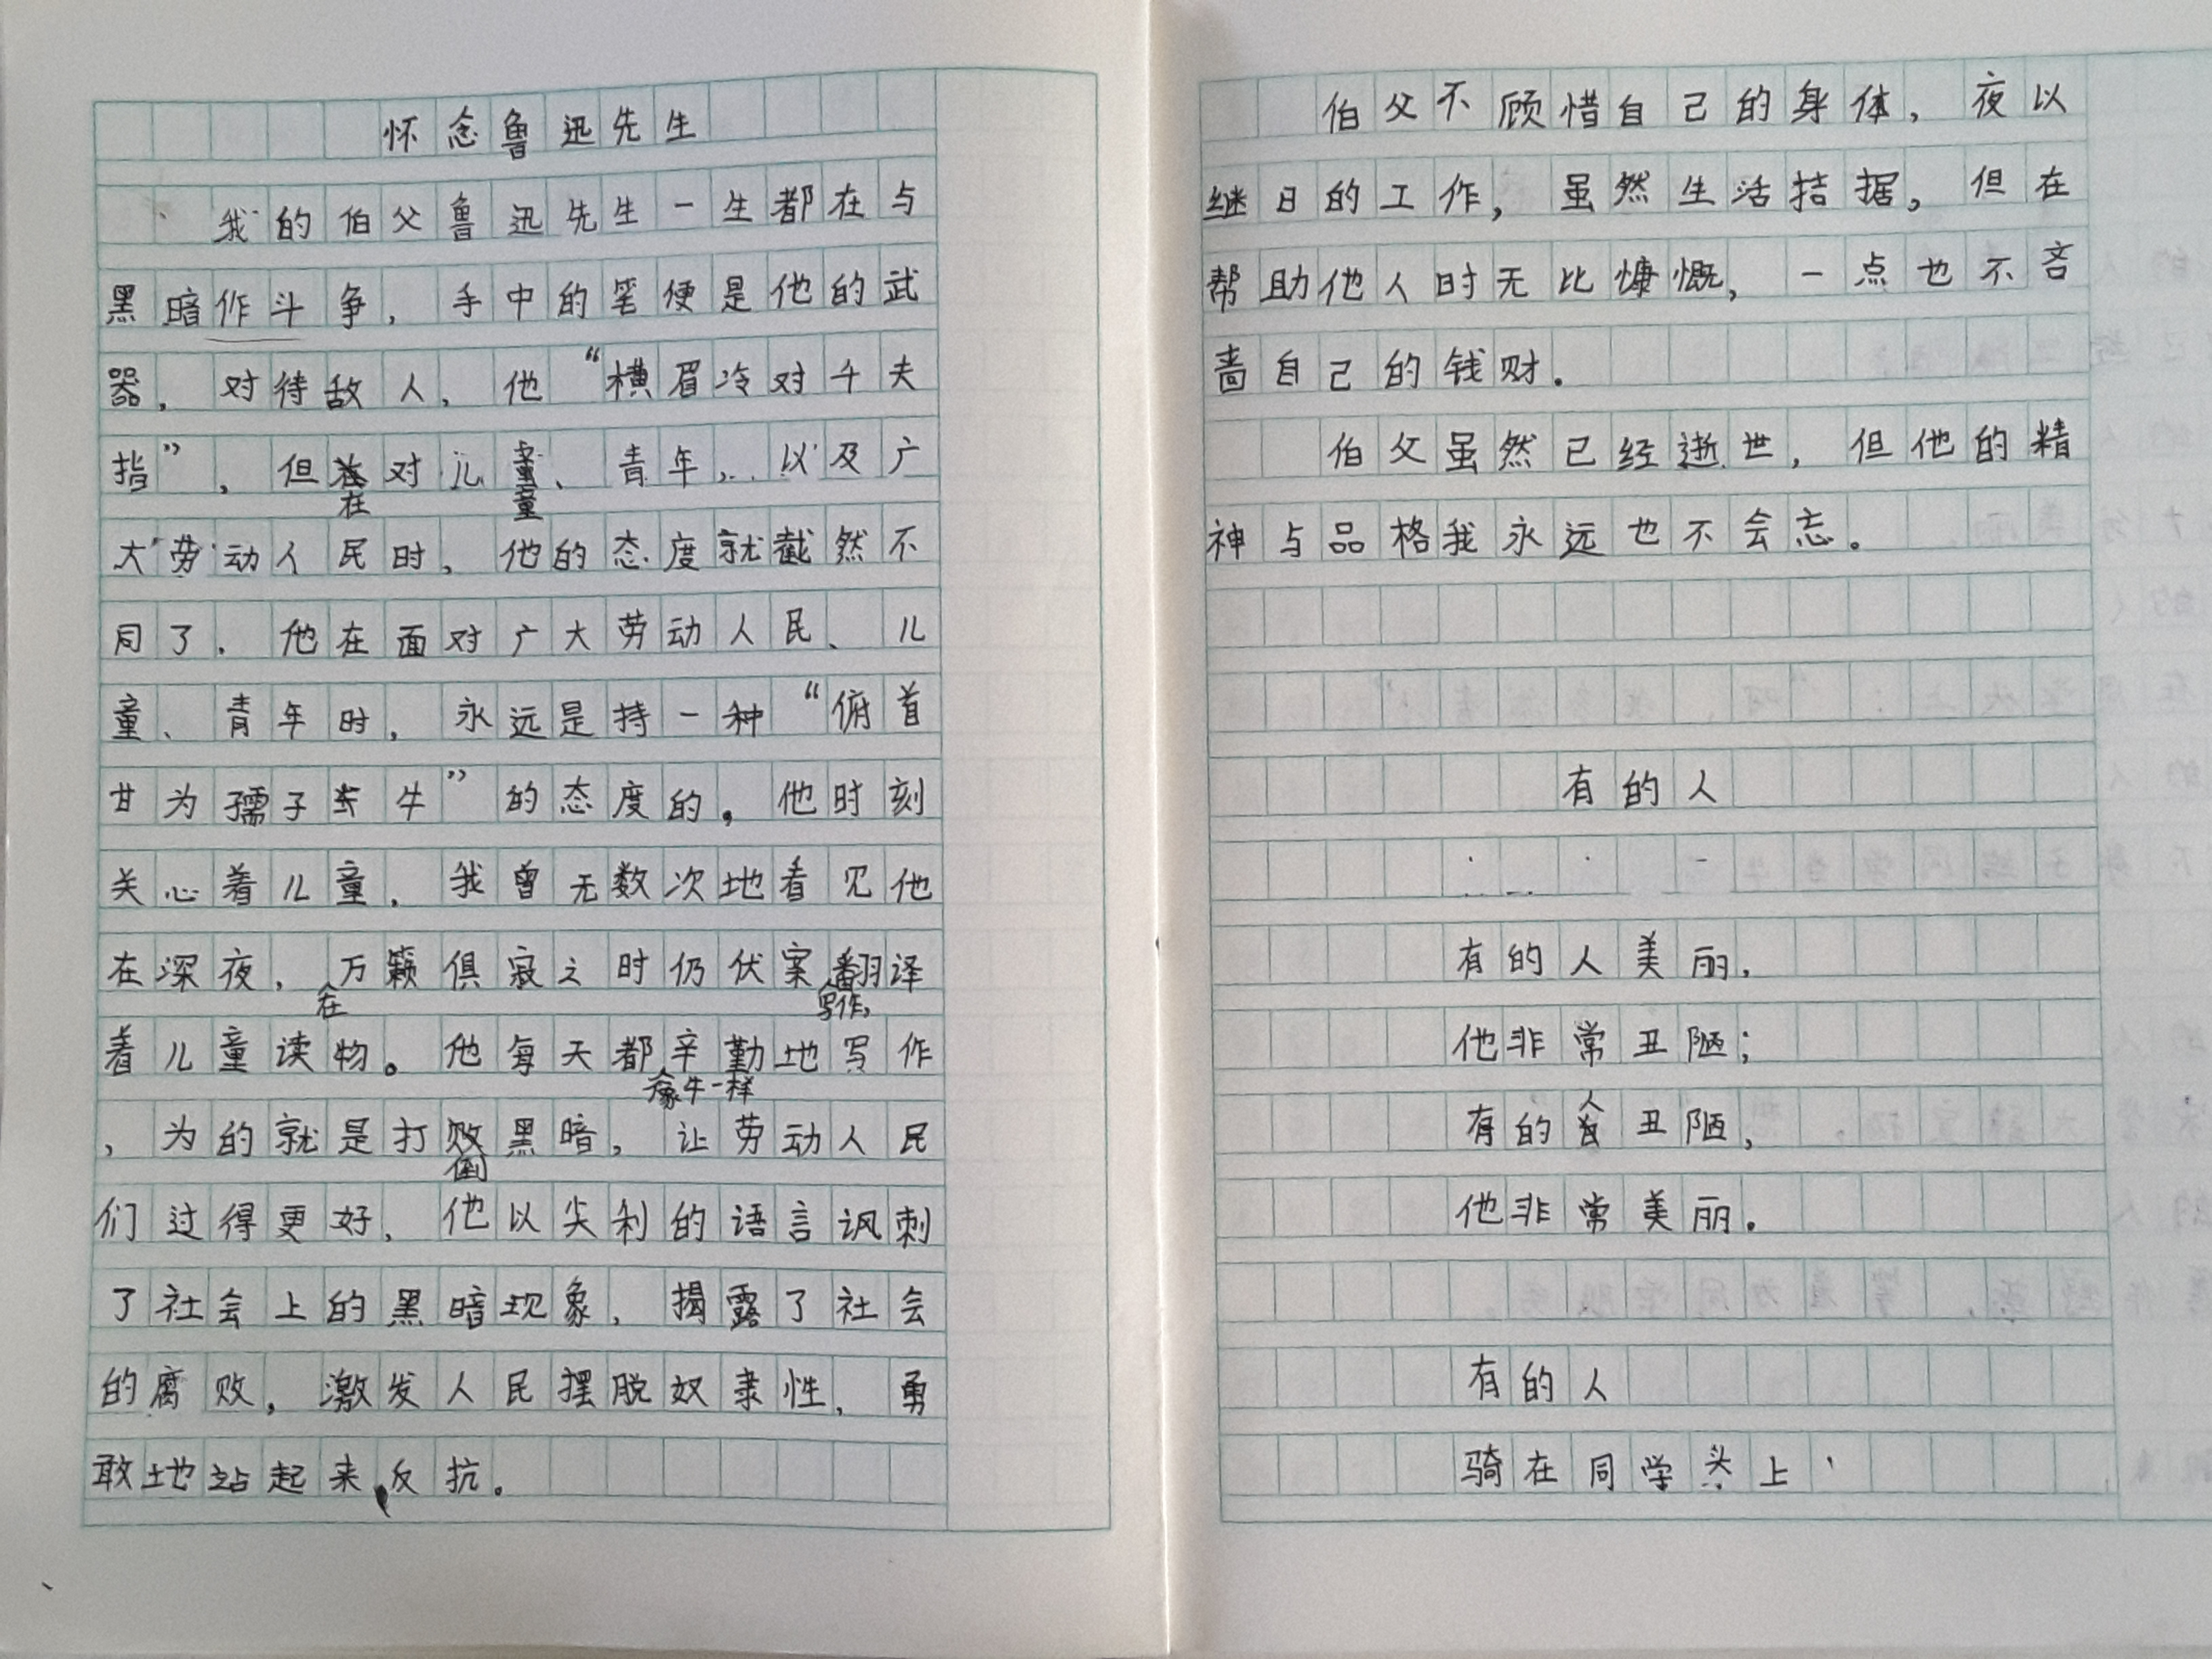 怀念鲁迅先生
我的伯父鲁迅先生一生都在与
黑暗作斗争，手中的笔便是他的武
器，对待敌人，他“横眉冷对千夫
指”，但在对儿童、青年，以及广
大劳动人民时，他的态度就截然不
同了，他在面对广大劳动人民、儿
童、青年时，永远是持一种“俯首
甘为孺子牛”的态度的。他时刻
关心着儿童，我曾无数次地看见他
在深夜，在万籁俱寂之时仍伏案写作，翻译
着儿童读物。他每天都像牛一样辛勤地写作
，为的就是打倒黑暗，让劳动人民
们过得更好，他以尖利的语言讽刺
了社会上的黑暗现象，揭露了社会
的腐败，激发人民摆脱奴隶性，勇
敢地站起来反抗。
伯父不顾惜自己的身体，夜以
继日的工作，虽然生活拮据。但在
帮助他人时无比慷慨，一点也不吝
啬自己的钱财．
伯父虽然已经逝世，但他的精
神与品格我永远也不会忘。
有的人
有的人美丽，
他非常丑陋；
有的人丑陋，
他非常美丽．
有的人
骑在同学头上，